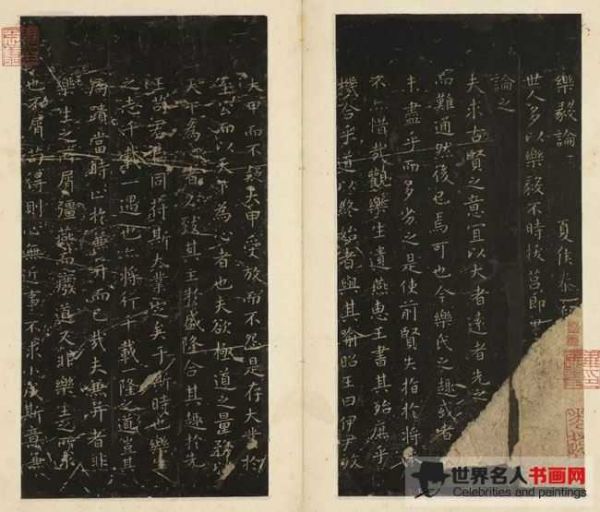 樂毅論 夏侯泰
世人多以樂毅不時拔莒即
論之
夫求古賢之意宜以大者遠者先之
而難通然後已焉可也今樂氏之趣或者
未盡乎而多劣之是使前賢失指於將
不亦惜哉觀樂生遺燕惠王書其殆庶乎
機合乎道以終始者與其喻昭王曰伊尹放
大甲而不疑大甲受放而不怨是存大業於
至公而以天下為心者也夫欲極道之量務以
天下為心者必致其主於盛隆合其趣於先
王苟君臣同符斯大業定矣于斯時也樂
之志千載一遇也亦將行千載一隆之道豈其
局蹟當時止於兼并而已哉夫兼并者非
樂生之所屑彊燕而廢道又非樂生之所求
也不屑苟得則心無近事不求小成斯意兼
世界名人书画网
Celebrities and paintings